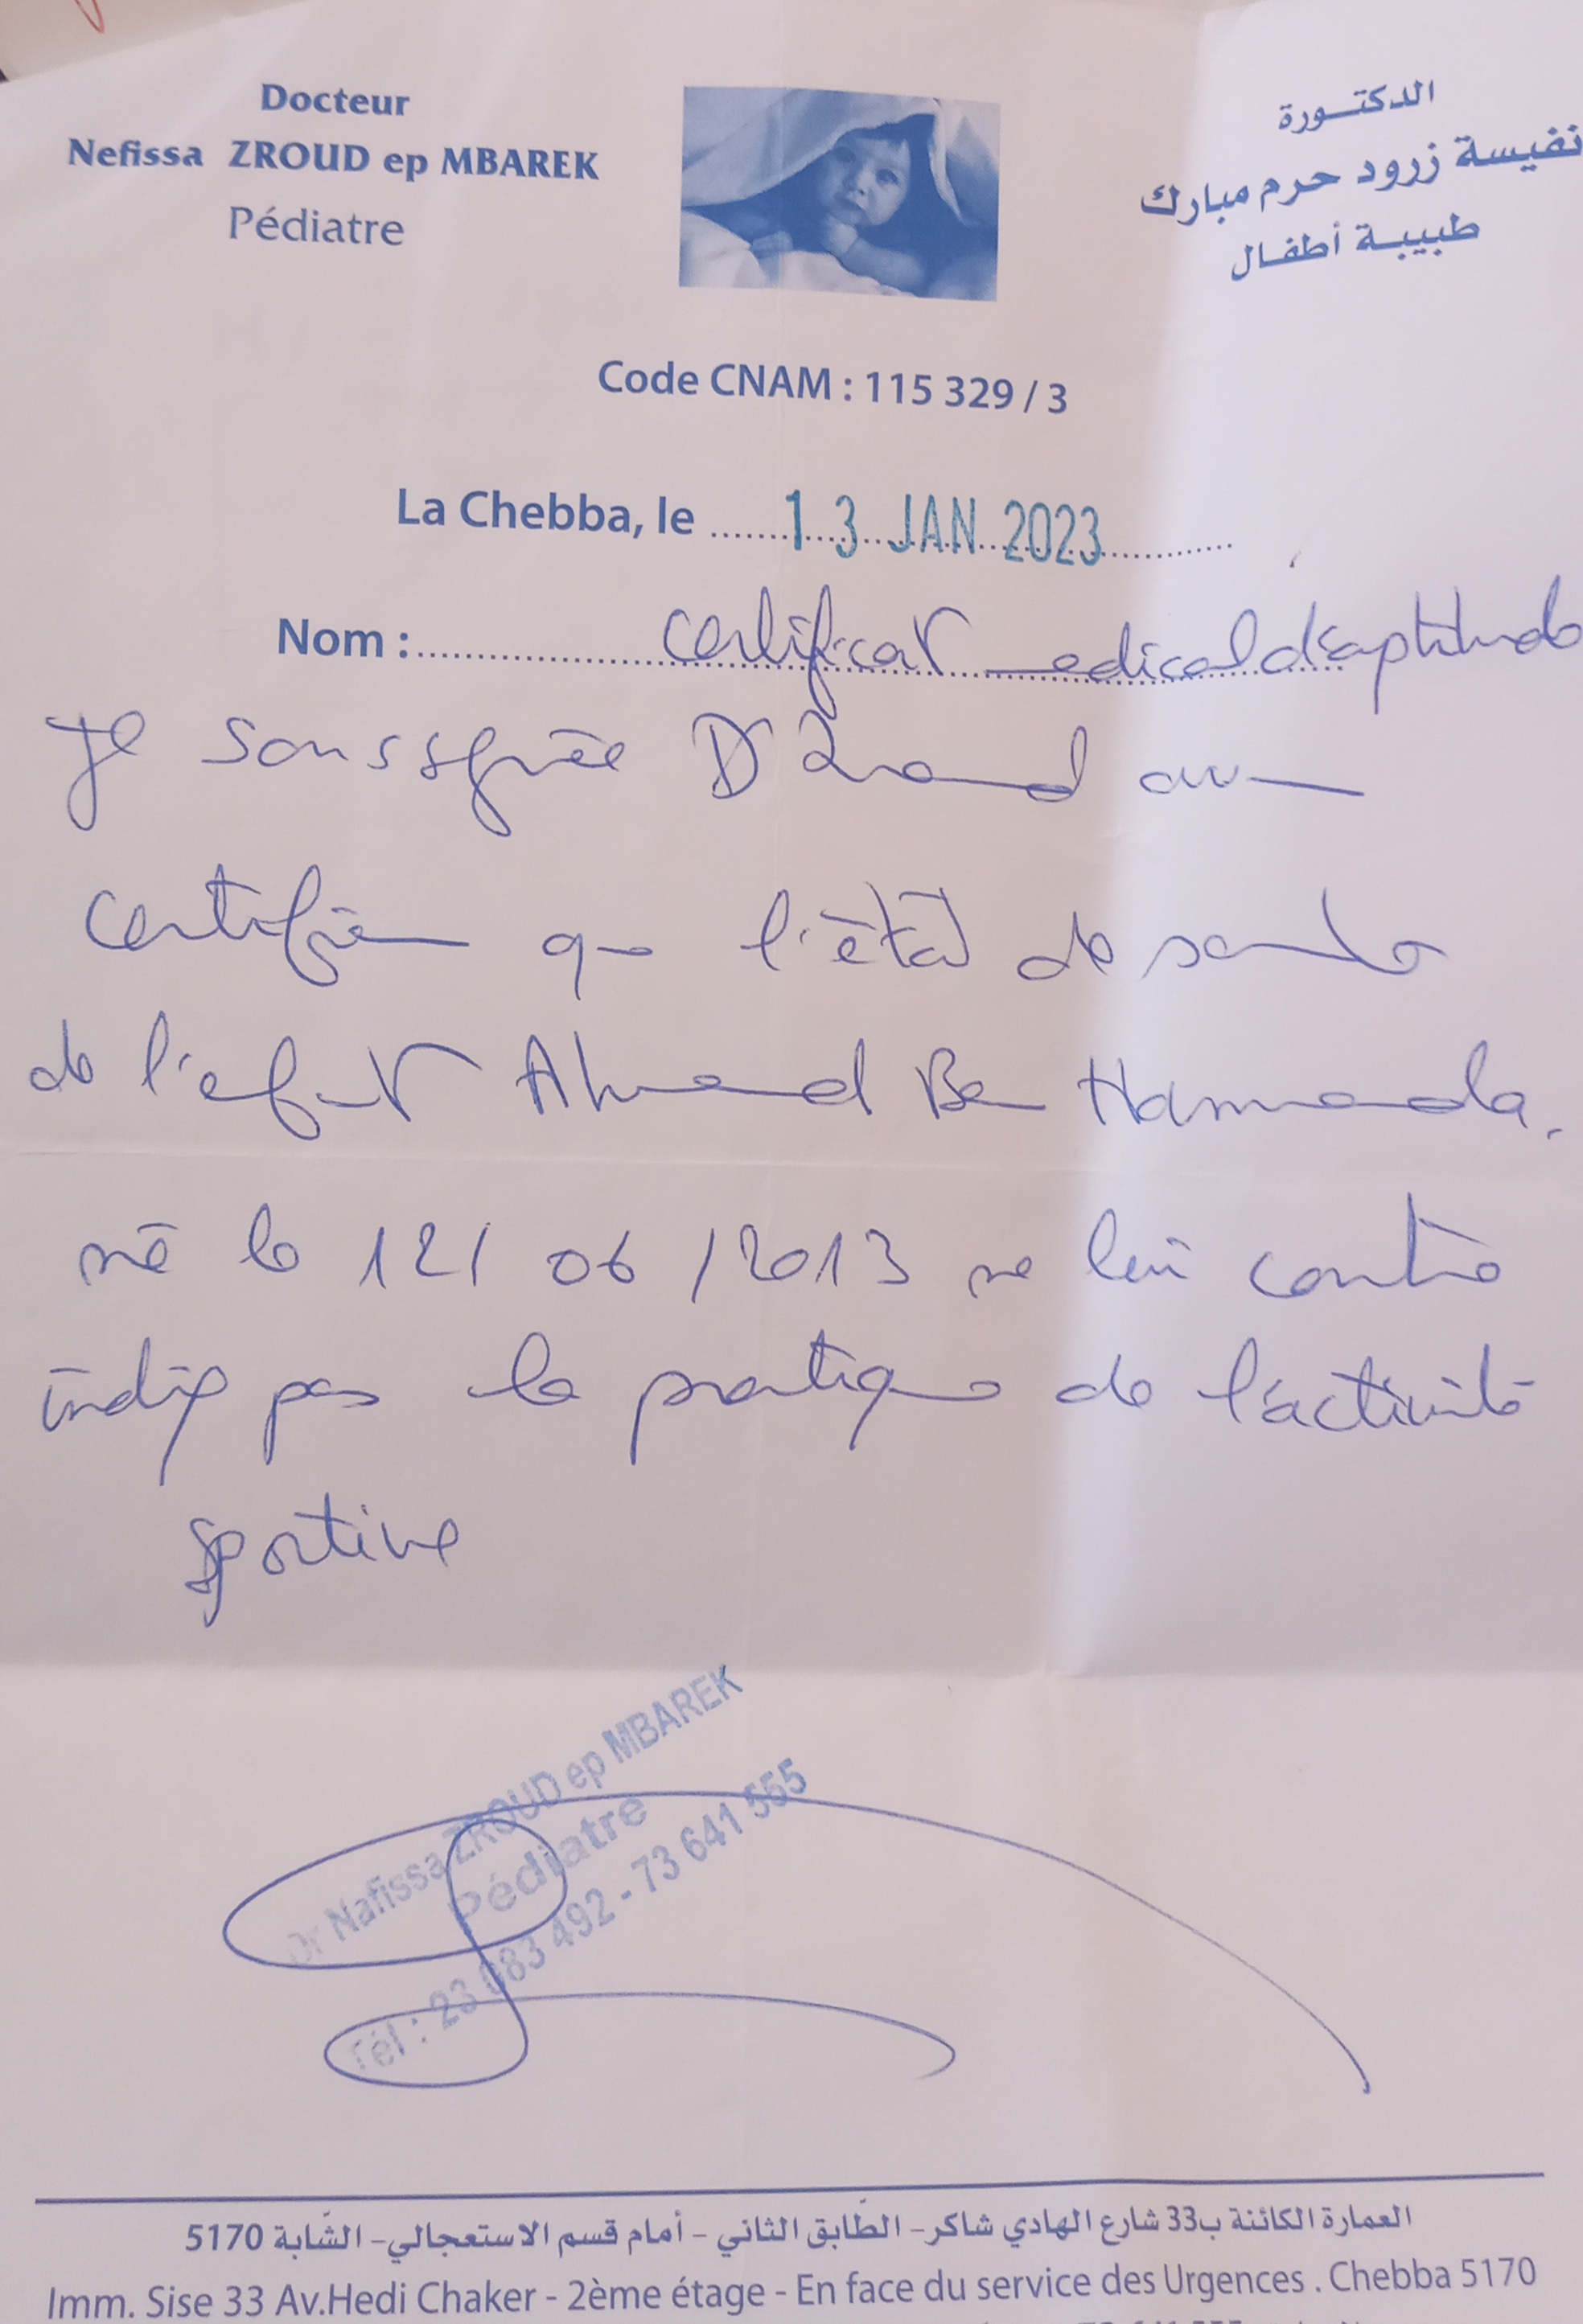 Docteur
Nefissa ZROUD ep MBAREK
Pédiatre
الدكتورة
نفيسة زرود حرم مبارك
طبيبة أطفال
Code CNAM : 115 329 / 3
La Chebba, le 13 JAN 2023
Nom : certificat medical d'aptitude
Je soussignée Dr Zroud
certifie que l'état de sante
de l'enfant Ahmed Ben Hammouda
né le 12/06/2013 ne lui contre
indiq pas la pratique de l'activité
sportive
Dr Nafissa ZROUD ep MBAREK
Pédiatre
Tél : 23 083 492 - 73 641 555
العمارة الكائنة ب33 شارع الهادي شاكر - الطّابق الثاني - أمام قسم الاستعجالي - الشّابة 5170
Imm. Sise 33 Av.Hedi Chaker - 2ème étage - En face du service des Urgences . Chebba 5170